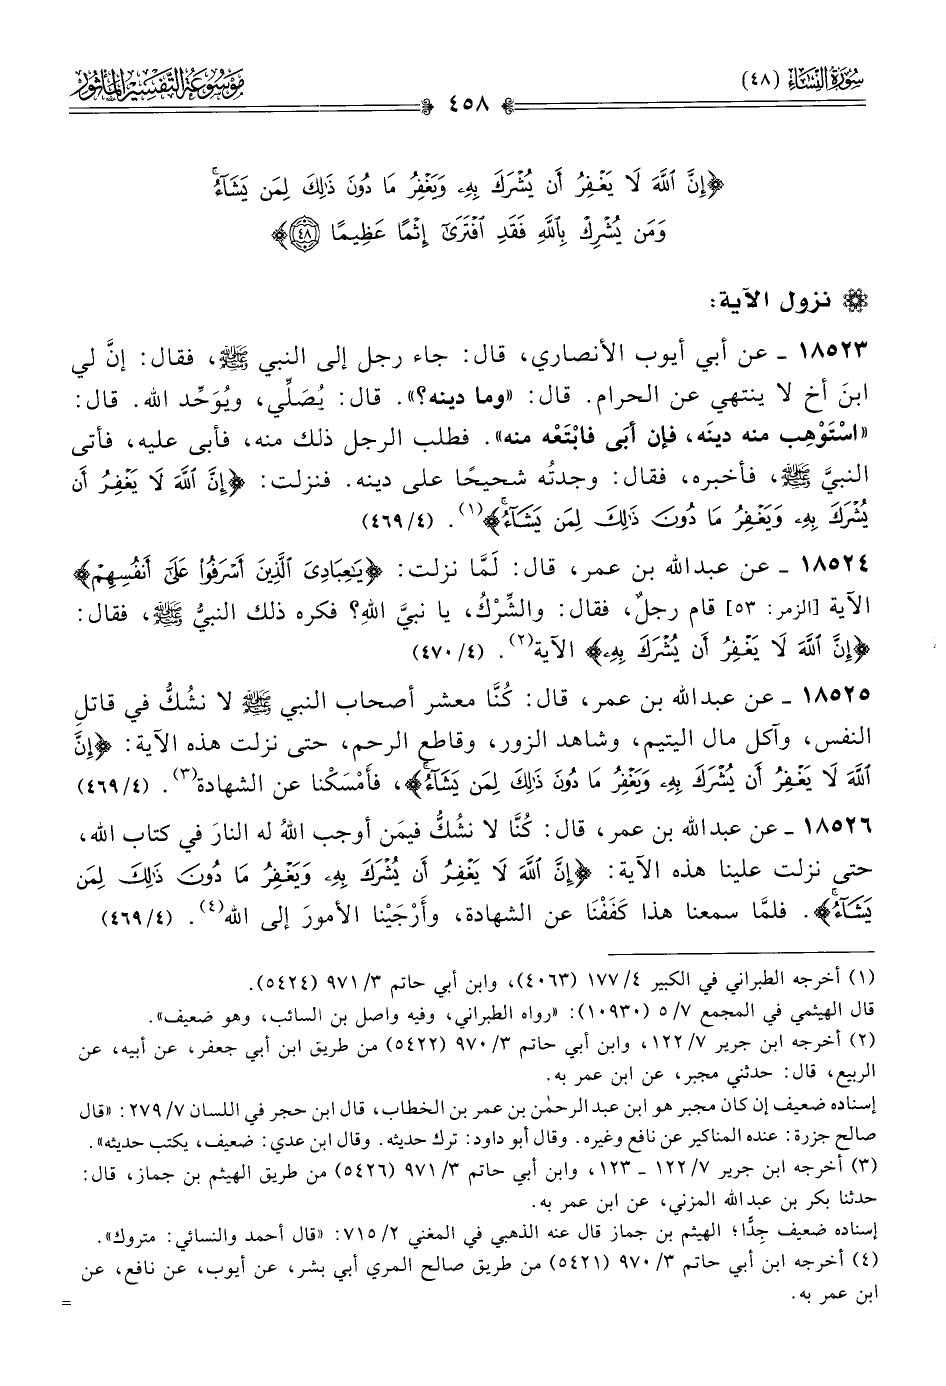 سُورَةُ النِّسَاءِ (٤٨)
٤٥٨
مَوْسُوعَةُ التَّفْسِيرِ المَأْثُورِ
﴿إِنَّ ٱللَّهَ لَا يَغْفِرُ أَن يُشْرَكَ بِهِۦ وَيَغْفِرُ مَا دُونَ ذَٰلِكَ لِمَن يَشَآءُۚ
وَمَن يُشْرِكْ بِٱللَّهِ فَقَدِ ٱفْتَرَىٰٓ إِثْمًا عَظِيمًا ٤٨﴾
نزول الآية:
١٨٥٢٣ ـ عن أبي أيوب الأنصاري، قال: جاء رجل إلى النبي ﷺ، فقال: إنَّ لي
ابنَ أخ لا ينتهي عن الحرام. قال: «وما دينه؟». قال: يُصَلِّي، ويُوَحِّد الله. قال:
«اسْتَوْهِب منه دينَه، فإن أبَى فابْتَعْه منه». فطلب الرجل ذلك منه، فأبى عليه، فأتى
النبيَّ ﷺ، فأخبره، فقال: وجدتُه شحيحًا على دينه. فنزلت: ﴿إِنَّ ٱللَّهَ لَا يَغْفِرُ أَن
يُشْرَكَ بِهِۦ وَيَغْفِرُ مَا دُونَ ذَٰلِكَ لِمَن يَشَآءُۚ﴾(١). (٤/٤٦٩)
١٨٥٢٤ ـ عن عبدالله بن عمر، قال: لَمَّا نزلت: ﴿يَٰعِبَادِىَ ٱلَّذِينَ أَسْرَفُوا۟ عَلَىٰٓ أَنفُسِهِمْ﴾
الآية [الزمر: ٥٣] قام رجلٌ، فقال: والشِّرْكُ، يا نبيَّ اللهِ؟ فكره ذلك النبيُّ ﷺ، فقال:
﴿إِنَّ ٱللَّهَ لَا يَغْفِرُ أَن يُشْرَكَ بِهِۦ﴾ الآية(٢). (٤/٤٧٠)
١٨٥٢٥ ـ عن عبدالله بن عمر، قال: كُنَّا معشر أصحاب النبي ﷺ لا نشُكُّ في قاتلِ
النفس، وآكل مال اليتيم، وشاهد الزور، وقاطع الرحم، حتى نزلت هذه الآية: ﴿إِنَّ
ٱللَّهَ لَا يَغْفِرُ أَن يُشْرَكَ بِهِۦ وَيَغْفِرُ مَا دُونَ ذَٰلِكَ لِمَن يَشَآءُۚ﴾، فأمْسَكْنا عن الشهادة(٣). (٤/٤٦٩)
١٨٥٢٦ ـ عن عبدالله بن عمر، قال: كُنَّا لا نشُكُّ فيمَن أوجب اللهُ له النارَ في كتاب الله،
حتى نزلت علينا هذه الآية: ﴿إِنَّ ٱللَّهَ لَا يَغْفِرُ أَن يُشْرَكَ بِهِۦ وَيَغْفِرُ مَا دُونَ ذَٰلِكَ لِمَن
يَشَآءُۚ﴾. فلمَّا سمعنا هذا كَفَفْنَا عن الشهادة، وأَرْجَيْنا الأمورَ إلى الله(٤). (٤/٤٦٩)
(١) أخرجه الطبراني في الكبير ٤/ ١٧٧ (٤٠٦٣)، وابن أبي حاتم ٣/ ٩٧١ (٥٤٢٤).
قال الهيثمي في المجمع ٧/ ٥ (١٠٩٣٠): «رواه الطبراني، وفيه واصل بن السائب، وهو ضعيف».
(٢) أخرجه ابن جرير ٧/ ١٢٢، وابن أبي حاتم ٣/ ٩٧٠ (٥٤٢٢) من طريق ابن أبي جعفر، عن أبيه، عن
الربيع، قال: حدثني مجبر، عن ابن عمر به.
إسناده ضعيف إن كان مجبر هو ابن عبد الرحمٰن بن عمر بن الخطاب، قال ابن حجر في اللسان ٧/ ٢٧٩: «قال
صالح جزرة: عنده المناكير عن نافع وغيره. وقال أبو داود: ترك حديثه. وقال ابن عدي: ضعيف، يكتب حديثه».
(٣) أخرجه ابن جرير ٧/ ١٢٢ ـ ١٢٣، وابن أبي حاتم ٣/ ٩٧١ (٥٤٢٦) من طريق الهيثم بن جماز، قال:
حدثنا بكر بن عبد الله المزني، عن ابن عمر به.
إسناده ضعيف جِدًّا؛ الهيثم بن جماز قال عنه الذهبي في المغني ٢/ ٧١٥: «قال أحمد والنسائي: متروك».
(٤) أخرجه ابن أبي حاتم ٣/ ٩٧٠ (٥٤٢١) من طريق صالح المري أبي بشر، عن أيوب، عن نافع، عن
ابن عمر به.
=